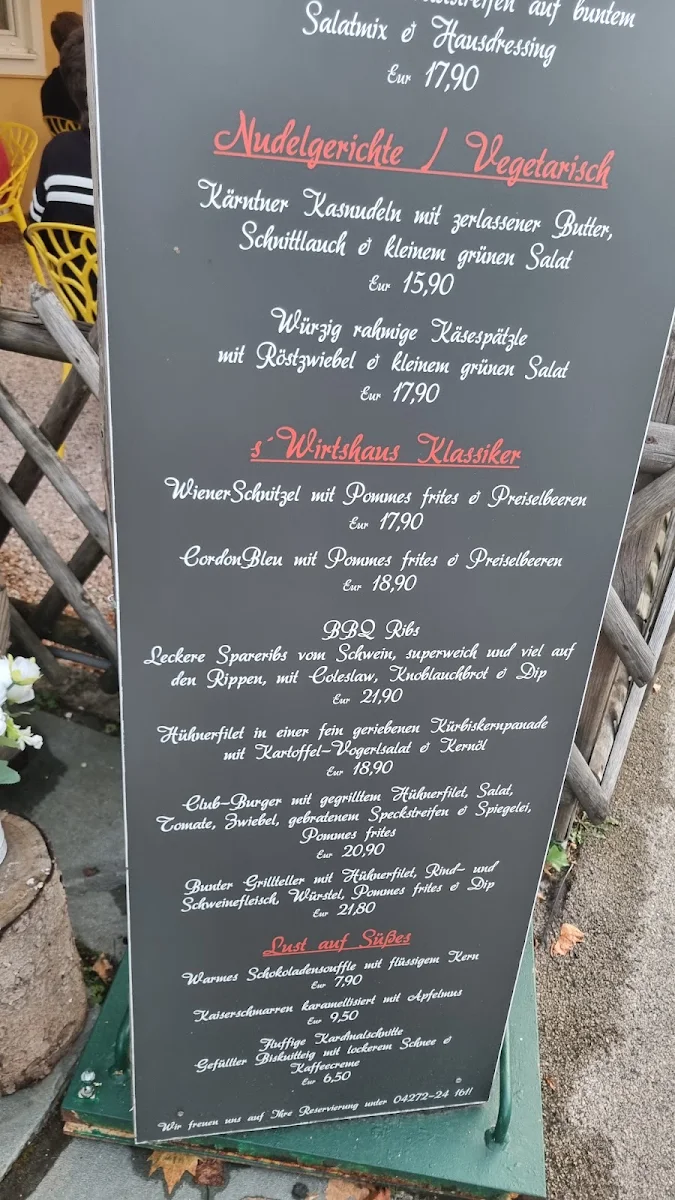 auf buntem
Salatmix & Hausdressing
Eur 17,90
Nudelgerichte / Vegetarisch
Kärntner Kasnudeln mit zerlassener Butter,
Schnittlauch & kleinem grünen Salat
Eur 15,90
Würzig rahmige Käsespätzle
mit Röstzwiebel & kleinem grünen Salat
Eur 17,90
s´Wirtshaus Klassiker
WienerSchnitzel mit Pommes frites & Preiselbeeren
Eur 17,90
CordonBleu mit Pommes frites & Preiselbeeren
Eur 18,90
BBQ Ribs
Leckere Spareribs vom Schwein, superweich und viel auf
den Rippen, mit Coleslaw, Knoblauchbrot & Dip
Eur 21,90
Hühnerfilet in einer fein geriebenen Kürbiskernpanade
mit Kartoffel-Vogerlsalat & Kernöl
Eur 18,90
Club-Burger mit gegrilltem Hühnerfilet, Salat,
Tomate, Zwiebel, gebratenem Speckstreifen & Spiegelei,
Pommes frites
Eur 20,90
Bunter Grillteller mit Hühnerfilet, Rind- und
Schweinefleisch, Würstel, Pommes frites & Dip
Eur 21,80
Lust auf Süßes
Warmes Schokoladensouffle mit flüssigem Kern
Eur 7,90
Kaiserschmarren karamellisiert mit Apfelmus
Eur 9,50
Fluffige Kardinalschnitte
Gefüllter Biskuitteig mit lockerem Schnee &
Kaffeecreme
Eur 6,50
Wir freuen uns auf Ihre Reservierung unter 04272-24 16!!